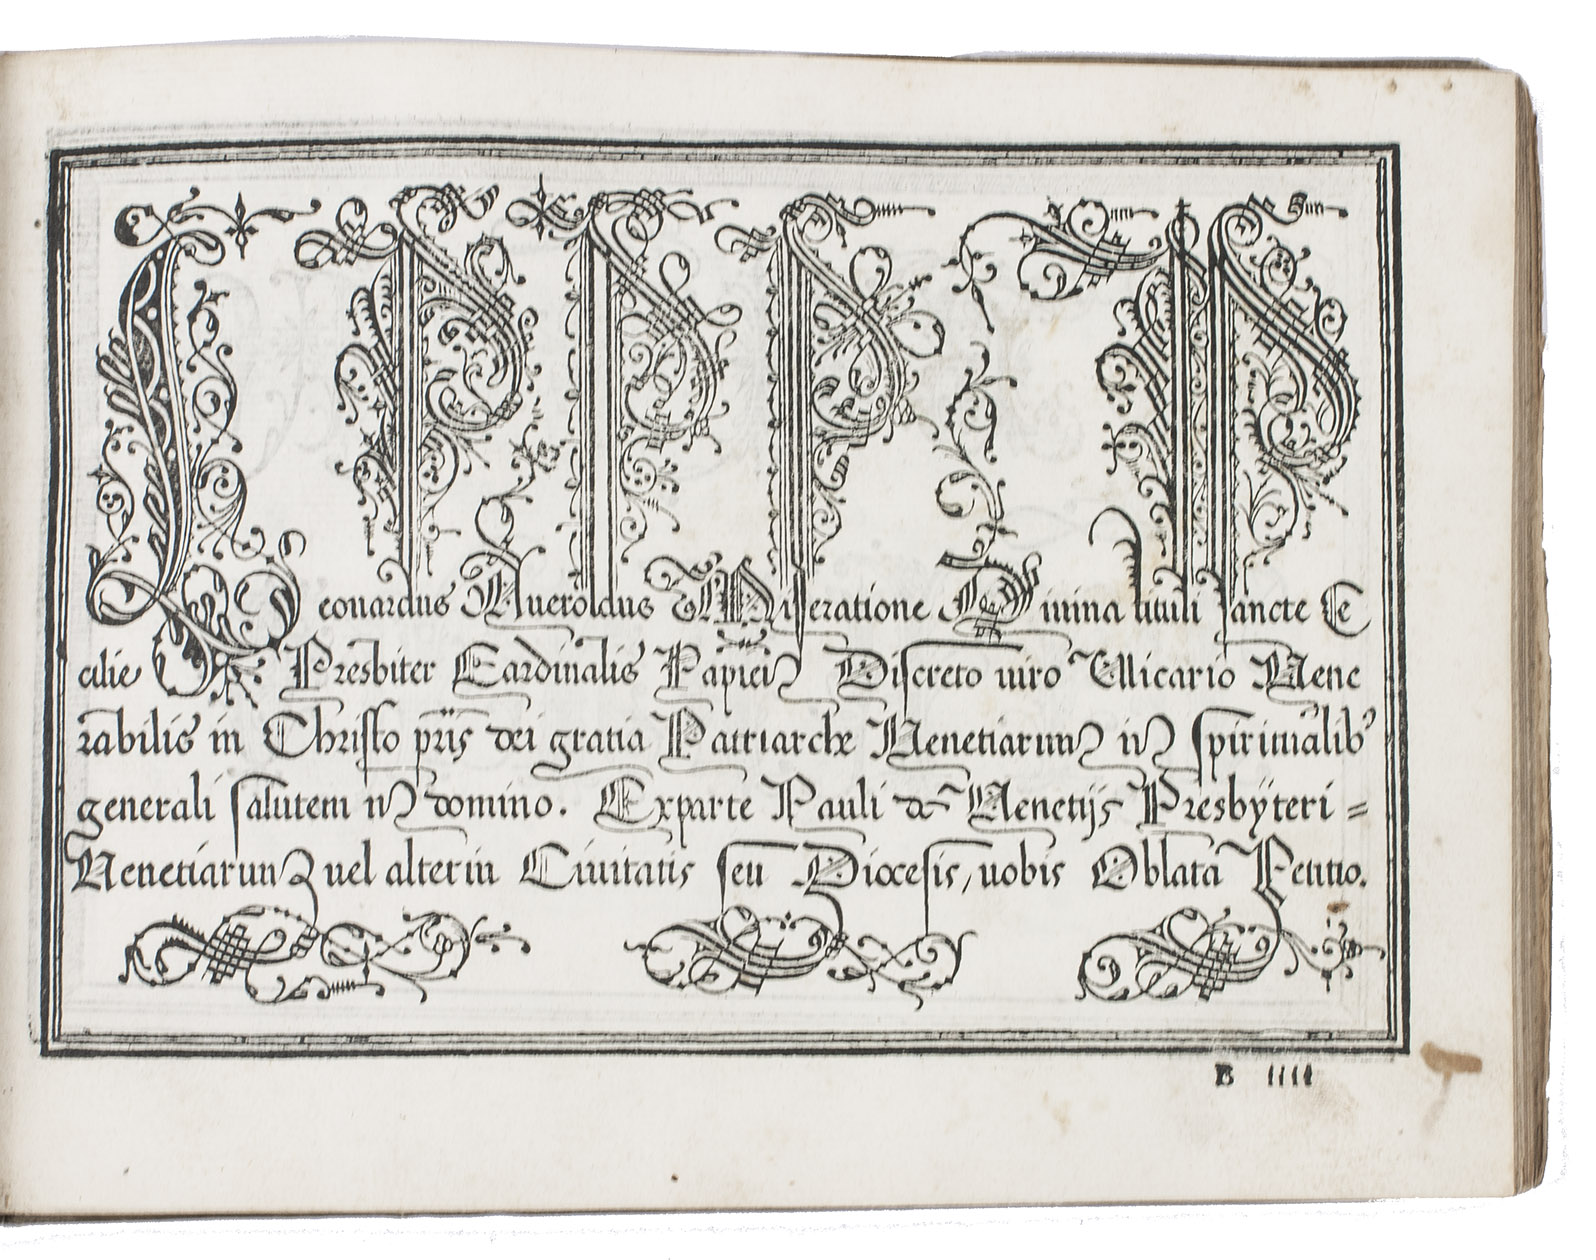 Leonardus Aueroldus Miseratione Diuina tituli sancte Ce
cilie Presbiter Cardinalis Papien Discreto uiro Vicario Uene
rabilis in Christo pris dei gratia Patriarche Uenetiarum in spiritualib9
generali salutem in domino. Exparte Pauli de Uenetijs Presbÿteri =
Uenetiarum uel alterin Ciuitatis seu Diocesis, uobis Oblata Petitio.
B iiii